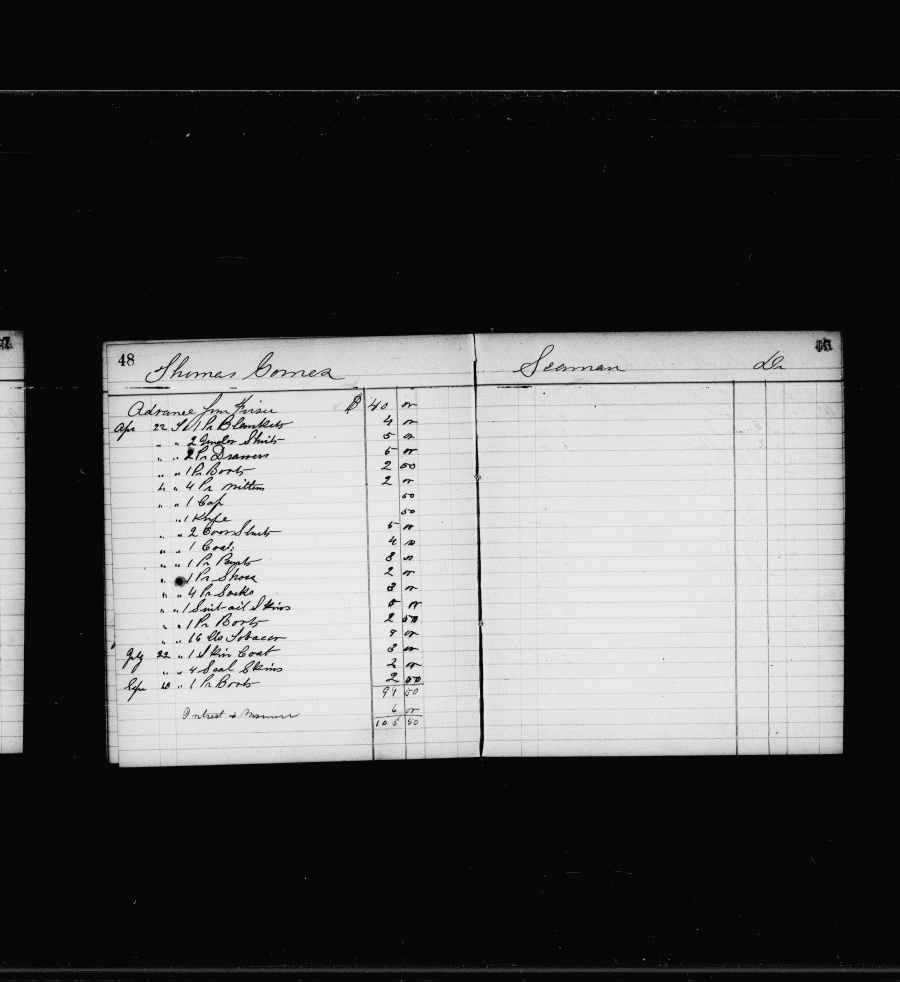 48
Thomas Gomez Seaman Dr
Advance $ 40 00
Apr 22 To 1 Pr Blankets 4 00
" " 2 Under Shirts 5 00
" " 2 Pr Drawers 5 00
" " 1 Pr Boots 2 50
" " 4 Pr Mittens 2 00
" " 1 Cap 50
" 1 Knife 50
" " 2 Over Shirts 5 00
" " 1 Coat 4 00
" " 1 Pr Pants 3 00
" 1 Pr Shoes 2 00
" " 4 Pr Socks 3 00
" " 1 Suit oil Skins 00
" " 1 Pr Boots 2 50
" " 16 lbs Tobacco 00
July 22 " 1 Skin Coat 3 00
" " 4 Seal Skins 2 00
Sep 10 " 1 Pr Boots 2 50
50
Intrest & 6 00
105 50